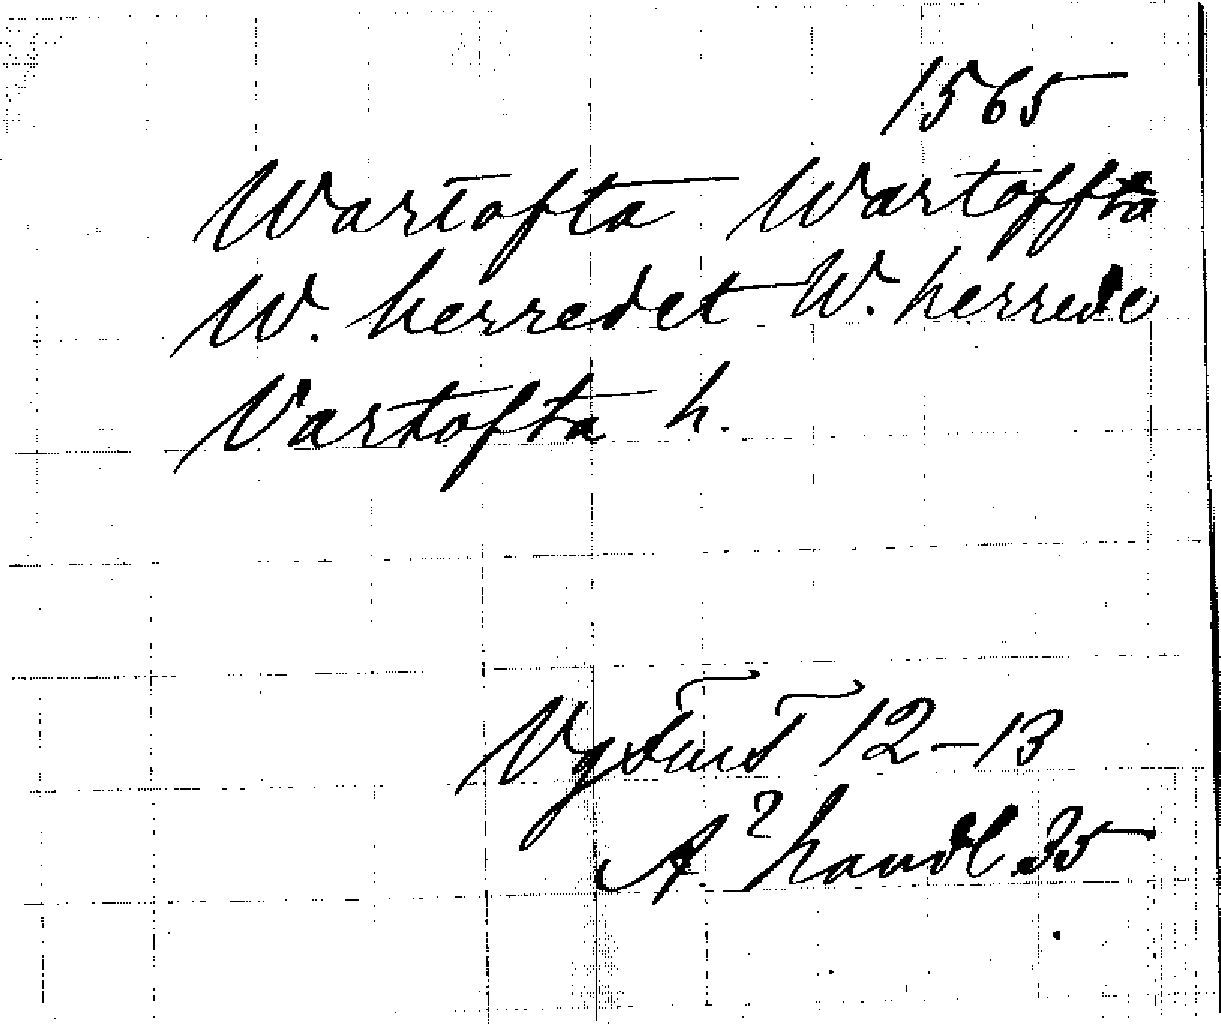 1565
Wartofta Wartoffta
W. herredet W. herrede
Vartofta h.
12-13
handl. 35